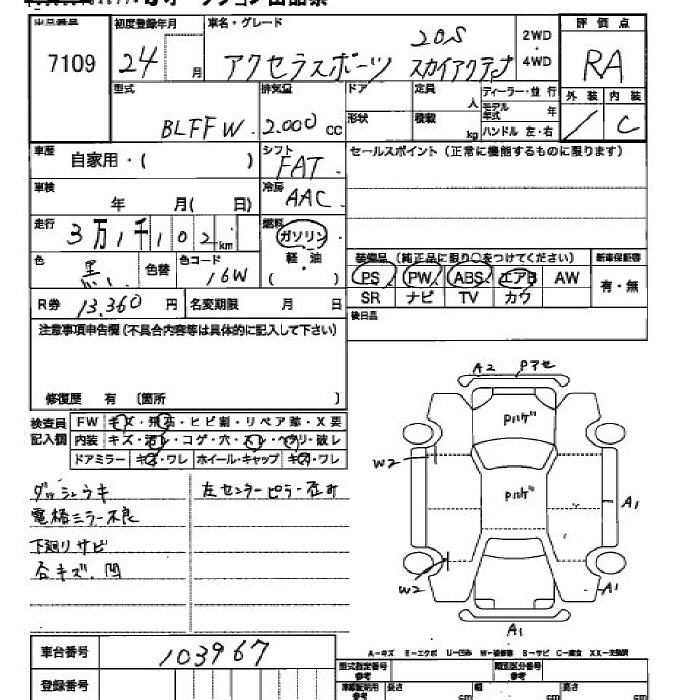 出品番号 初度登録年月 車名・グレード 2WD・4WD 評価点
7109 24 月 アクセラスポーツ 20S スカイアクティブ RA
型式 排気量 ドア 定員 人 ディーラー・並行 外装 内装
BLFFW 2.000 cc 形状 積載 kg モデル年式 年 ハンドル 左・右 / C
車歴 自家用・( ) シフト FAT セールスポイント (正常に機能するものに限ります)
車検 年 月( 日) 冷房 AAC
走行 3万1千102km 燃料 ガソリン 軽油 ( )
色 黒 色替 色コード 16W
装備品 (純正品に限り○をつけてください) 新車保証書
PS PW ABS エアB AW 有・無
SR ナビ TV カワ
R券 13.360 円 名変期限 月 日
後日品
注意事項申告欄 (不具合内容等は具体的に記入して下さい)
修復歴 有 〔箇所 〕
検査員記入欄
FW キズ・飛石・ヒビ割・リペア跡・X要
内装 キズ・汚レ・コゲ・穴・スレ・ヘタリ・破レ
ドアミラー キズ・ワレ ホイール・キャップ キズ・ワレ
ダッシュウキ 左センターピラー
電格ミラー不良
下廻リサビ
合キズ.凹
A2 Pアセ
Pハゲ
W2
Pハゲ
A1
W2
A1
A1
A-キズ E-エクボ U-凹み W-補修跡 S-サビ C-腐食 XX-交換済
車台番号 103967
登録番号
型式指定番号 参考 類別区分番号 参考
長さ cm 幅 cm 高さ cm